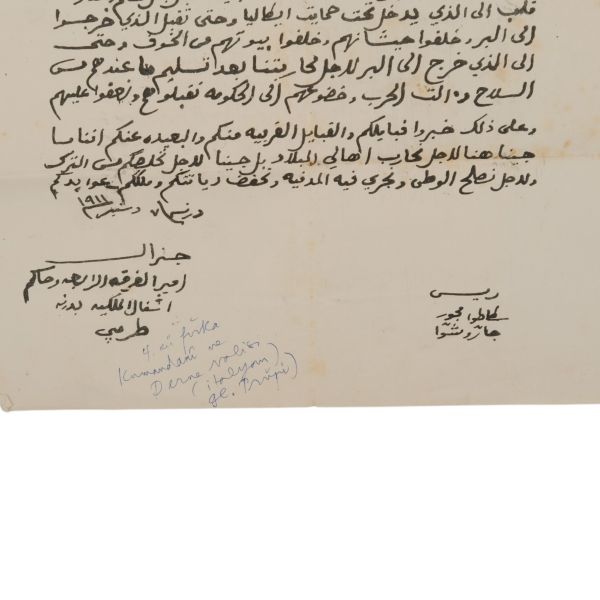 قلب الى الذي يدخل تحت حمايت ايطاليا وحتى تقبل الذي خرجوا
الى البر وخلفوا حيشانهم وخلفوا بيوتهم من الخوف وحتى
الى الذي خرج الى البر للاجل محاربتنا بعد تسليم ما عندهم من
السلاح والت الحرب وخضوعهم الى الحكومه نقبلوهم ونعفوا عليهم
وعلى ذلك خبروا قبايلكم والقبايل القريبه منكم والبعيده عنكم اننا ما
جينا هنا للاجل نحارب اهالي البلاد بل جينا للاجل نخلصكم من الترك
وللاجل نصلح الوطن ونجري فيه المدنيه ونحفض ديانتكم وملككم عوايدكم
درنه دسمبر ١٩١١
جنرال
امير الفرقه الرابعه وحاكم
اشغال الملكيه بدرنه
طرمبي
ريس
جاز
4. cü fırka
Kumandanı ve
Derne valisi
(italyan)
gl. Trüpi)